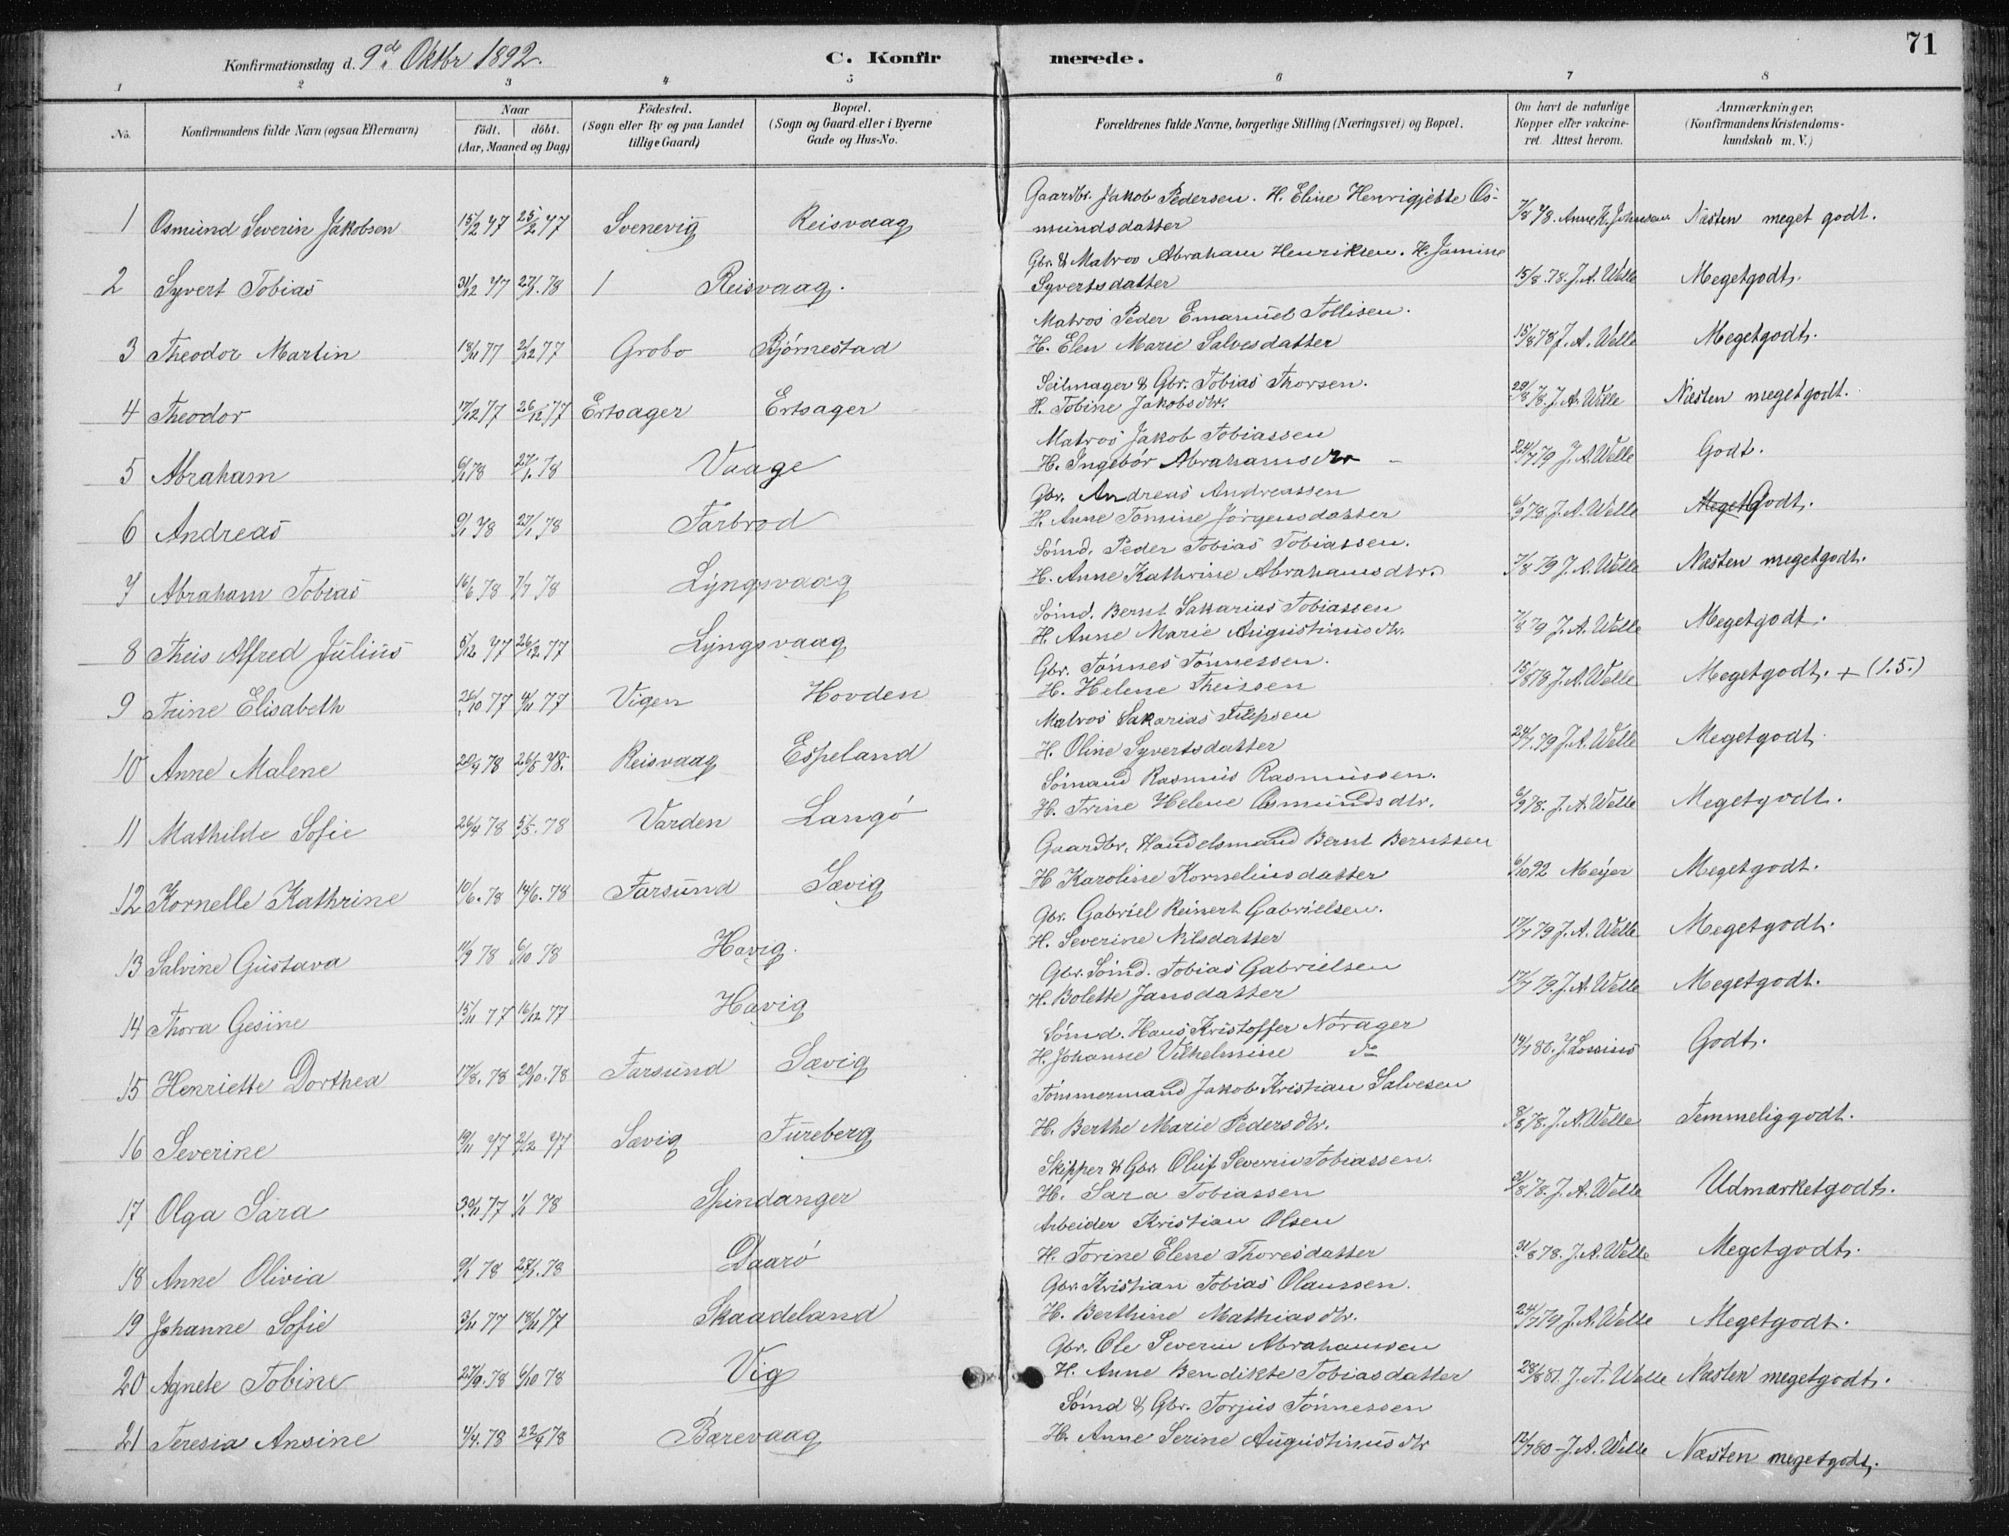 Konfirmationsdag d. 9de Oktbr 1892. C. Konfirmerede. 71
1 2 3 4 5 6 7 8
No. Konfirmandens fulde Navn (ogsaa Efternavn) Naar födt. döbt. (Aar, Maaned og Dag) Födested. (Sogn eller By og paa Landet tillige Gaard) Bopæl. (Sogn og Gaard eller i Byerne Gade og Hus-No. Forældrenes fulde Navne, borgerlige Stilling (Næringsvei) og Bopæl. Om havt de naturlige Kopper eller vakcineret. Attest herom. Anmærkninger, (Konfirmandens Kristendomskundskab m. V.)
1 Osmund Severin Jakobsen 15/12 77 25/12 77 Svenevig Reisvaag Gaardbr. Jakob Pedersen. H. Eline Henrigjette Osmundsdatter 7/8 78. Anne K. Johnsen Næsten meget godt.
2 Syvert Tobias 31/12 77 27/1 78 Reisvaag. Gbr. & Matros Abraham Henriksen. H. Jamine Syvertsdatter 15/8 .78. J. A. Welle Megetgodt.
3 Theodor Martin 18/11 77 2/12 77 Grobo Bjørnestad Matros Peder Emanuel Tollisen. H. Elen Marie Salvesdatter 15/8 78 J. A. Welle Megetgodt.
4 Theodor 17/12 77 26/12 77 Ertsager Ertsager Seilmager & Gbr. Tobias Thorsen. H. Tobine Jakobsdtr. 29/8 78. J. A. Welle Næsten megetgodt.
5 Abraham 6/1 78 27/1. 78 Vaage Matros Jakob Tobiassen H. Ingebór Abrahamsdtr 24/7 79 J. A. Welle Godt.
6 Andreas 9/1 78 27/1 78 Farbrod Gbr. Andreas Andreassen H. Anne Tomine Jörgensdatter 6/9 78. J. A. Welle Meget Godt.
7 Abraham Tobias 16/6 78 7/7 78 Lyngsvaag Sömd. Peder Tobias Tobiassen. H. Anne Kathrine Abrahamsdtr. 7/8 79 J. A. Welle Næsten megetgodt.
8 Theis Alfred Julius 5/12 77 26/12 77 Lyngsvaag Sömd. Bernt Sakarias Tobiassen H. Anne Marie Augustinusdtr. 7/8 79 J. A. Welle Megetgodt.
9 Trine Elisabeth 26/10 77 4/11 77 Vigen Hovden Gbr. Tönnes Tönnessen. H. Helene Theissen 15/8 78 J. A. Welle Megetgodt. + (1.5.)
10 Anne Malene 20/4 78 26/5 78. Reisvaag Espeland Matros Sakarias Filipsen H. Oline Syvertsdatter 24/7. 79 J. A. Welle Megetgodt.
11 Mathilde Sofie 26/4 78 5/5. 78 Varden Langö Sömand Rasmus Rasmussen. H. Trine Helene Osmundsdtr. 6/9 78. J. A. Welle Megetgodt.
12 Kornelle Kathrine 10/6. 78 14/6. 78 Farsund Sævig Gaardbr. Handelsmand Bernt Berntsen H Karoline Korneliusdatter 6/10 92 Meyer Megetgodt.
13 Salvine Gustava 11/9 78 6/10 78 Havig. Gbr. Gabriel Reinert Gabrielsen. H. Severine Nilsdatter 17/7 79 J. A. Welle Megetgodt.
14 Thora Gesine 15/11 77 16/12 77 Havig Gbr. Sömd. Tobias Gabrielsen H. Bolette Jansdatter 17/7 79. J. A. Welle Megetgodt.
15 Henriette Dorthea 17/8. 78 20/10. 78 Farsund Sævig Sömd. Hans Kristoffer Norager H. Johanne Vilhelmine do 14/7 80. Godt.
16 Severine 19/11 77 2/12 77 Sævig Fureberg Tömmermand Jakob Kristian Salvesen H. Berthe Marie Pedersdtr. 8/8 78. J. A. Welle Temmeliggodt.
17 Olga Sara 30/11 77 1/1 78 Spindanger Skipper & Gbr. Oluf Severin Tobiassen. H. Sara Tobiassen 31/8 78. J. A. Welle Udmærketgodt.
18 Anne Olivia 9/1 78 27/1. 78 Daarö Arbeider Kristian Olsen H. Torine Elene Thoresdatter 31/8 78. J. A. Welle Megetgodt.
19 Johanne Sofie 3/11 77 18/11 77 Skaadeland Gbr. Kristian Tobias Olaussen. H. Berthine Mathiasdtr. 24/7 79 J. A. Welle Megetgodt.
20 Agnete Tobine 27/9. 78 6/10 78 Vig Gbr. Ole Severin Abrahamsen H. Anne Bendikte Tobiasdatter 28/8 81. J. A. Welle Næsten megetgodt.
21 Teresia Ansine 4/4. 78 22/4 78 Barevaag Sömd & Gbr. Torjus Tönnessen H. Anne Serine Augustinusdtr 12/7 80 - J. A. Welle Næsten megetgodt.